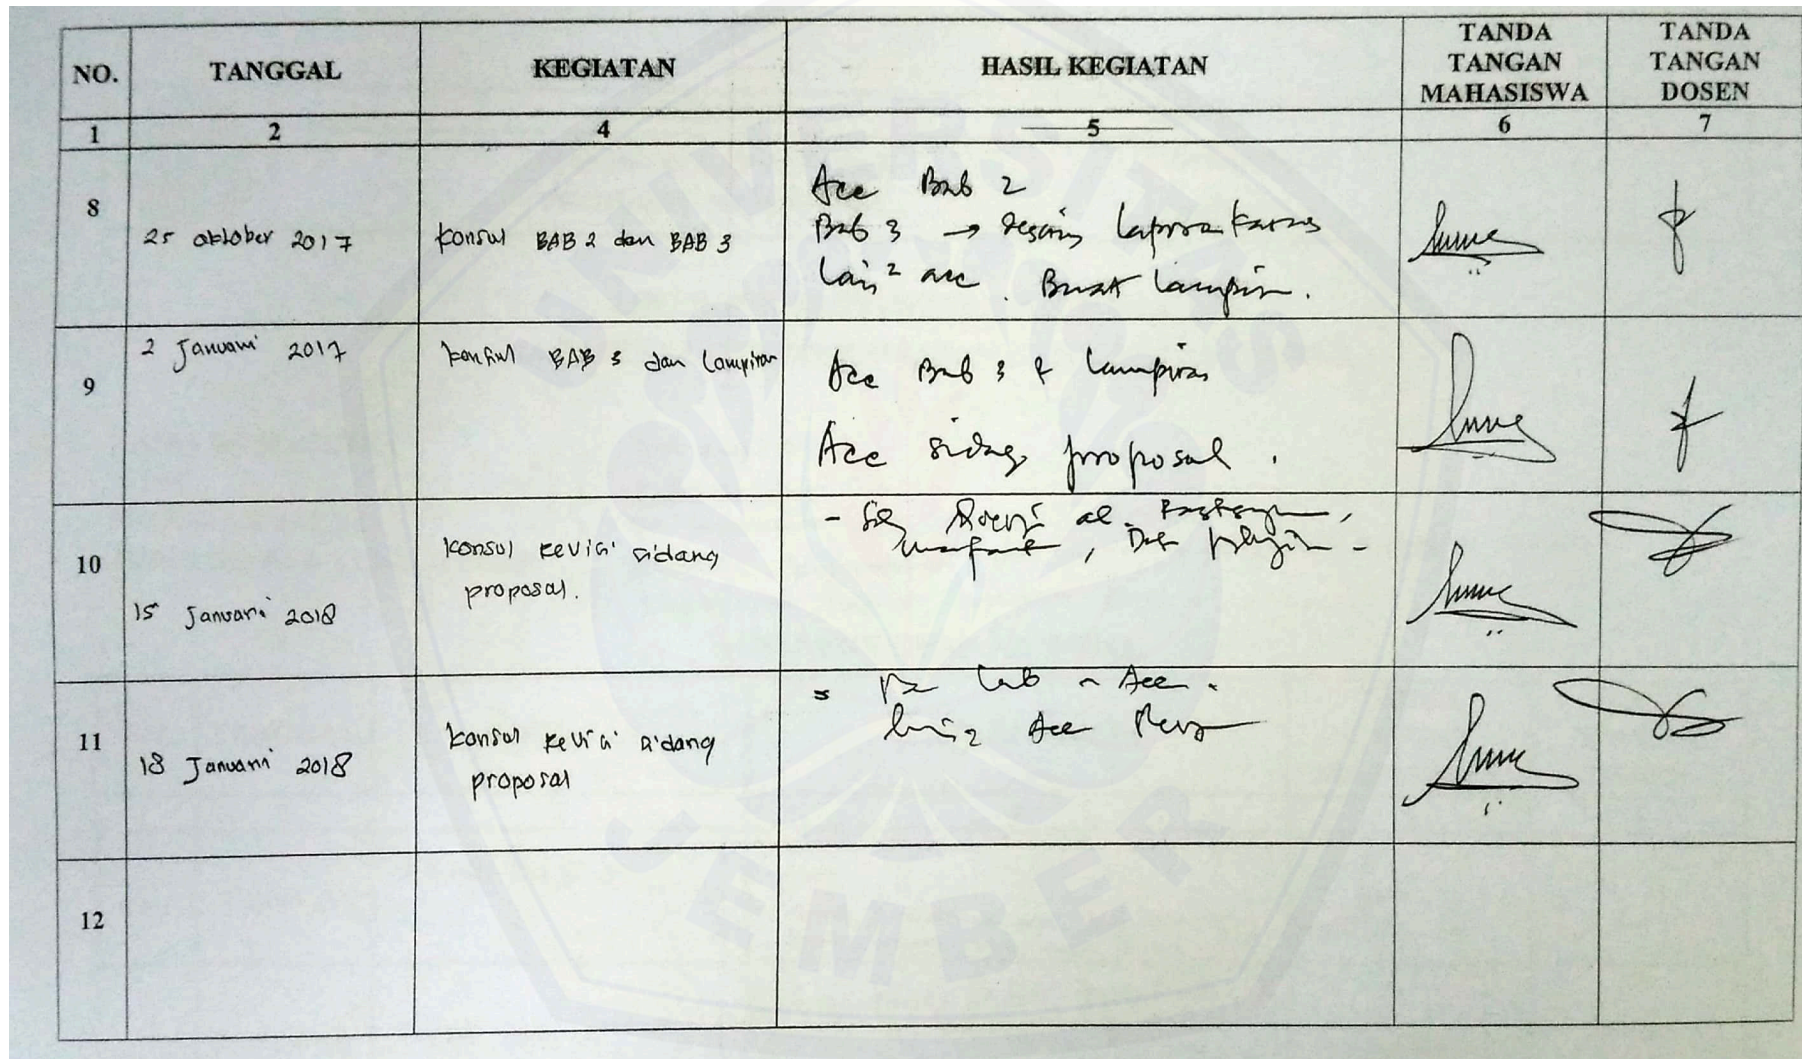 NO.
TANGGAL
KEGIATAN
HASIL KEGIATAN
TANDA
TANGAN
MAHASISWA
TANDA
TANGAN
DOSEN
1
2
4
5
6
7
8
25 oktober 2017
Konsul BAB 2 dan BAB 3
Acc Bab 2
Bab 3 → laporan kasus
Lain² acc. Buat lampiran.
9
2 Januari 2017
Konsul BAB 3 dan Lampiran
Acc Bab 3 & lampiran
Acc sidang proposal.
10
15 Januari 2018
Konsul Revisi sidang
proposal.
11
18 Januari 2018
Konsul Revisi sidang
proposal
Acc
Acc
12
UNIVERSITAS
JEMBER